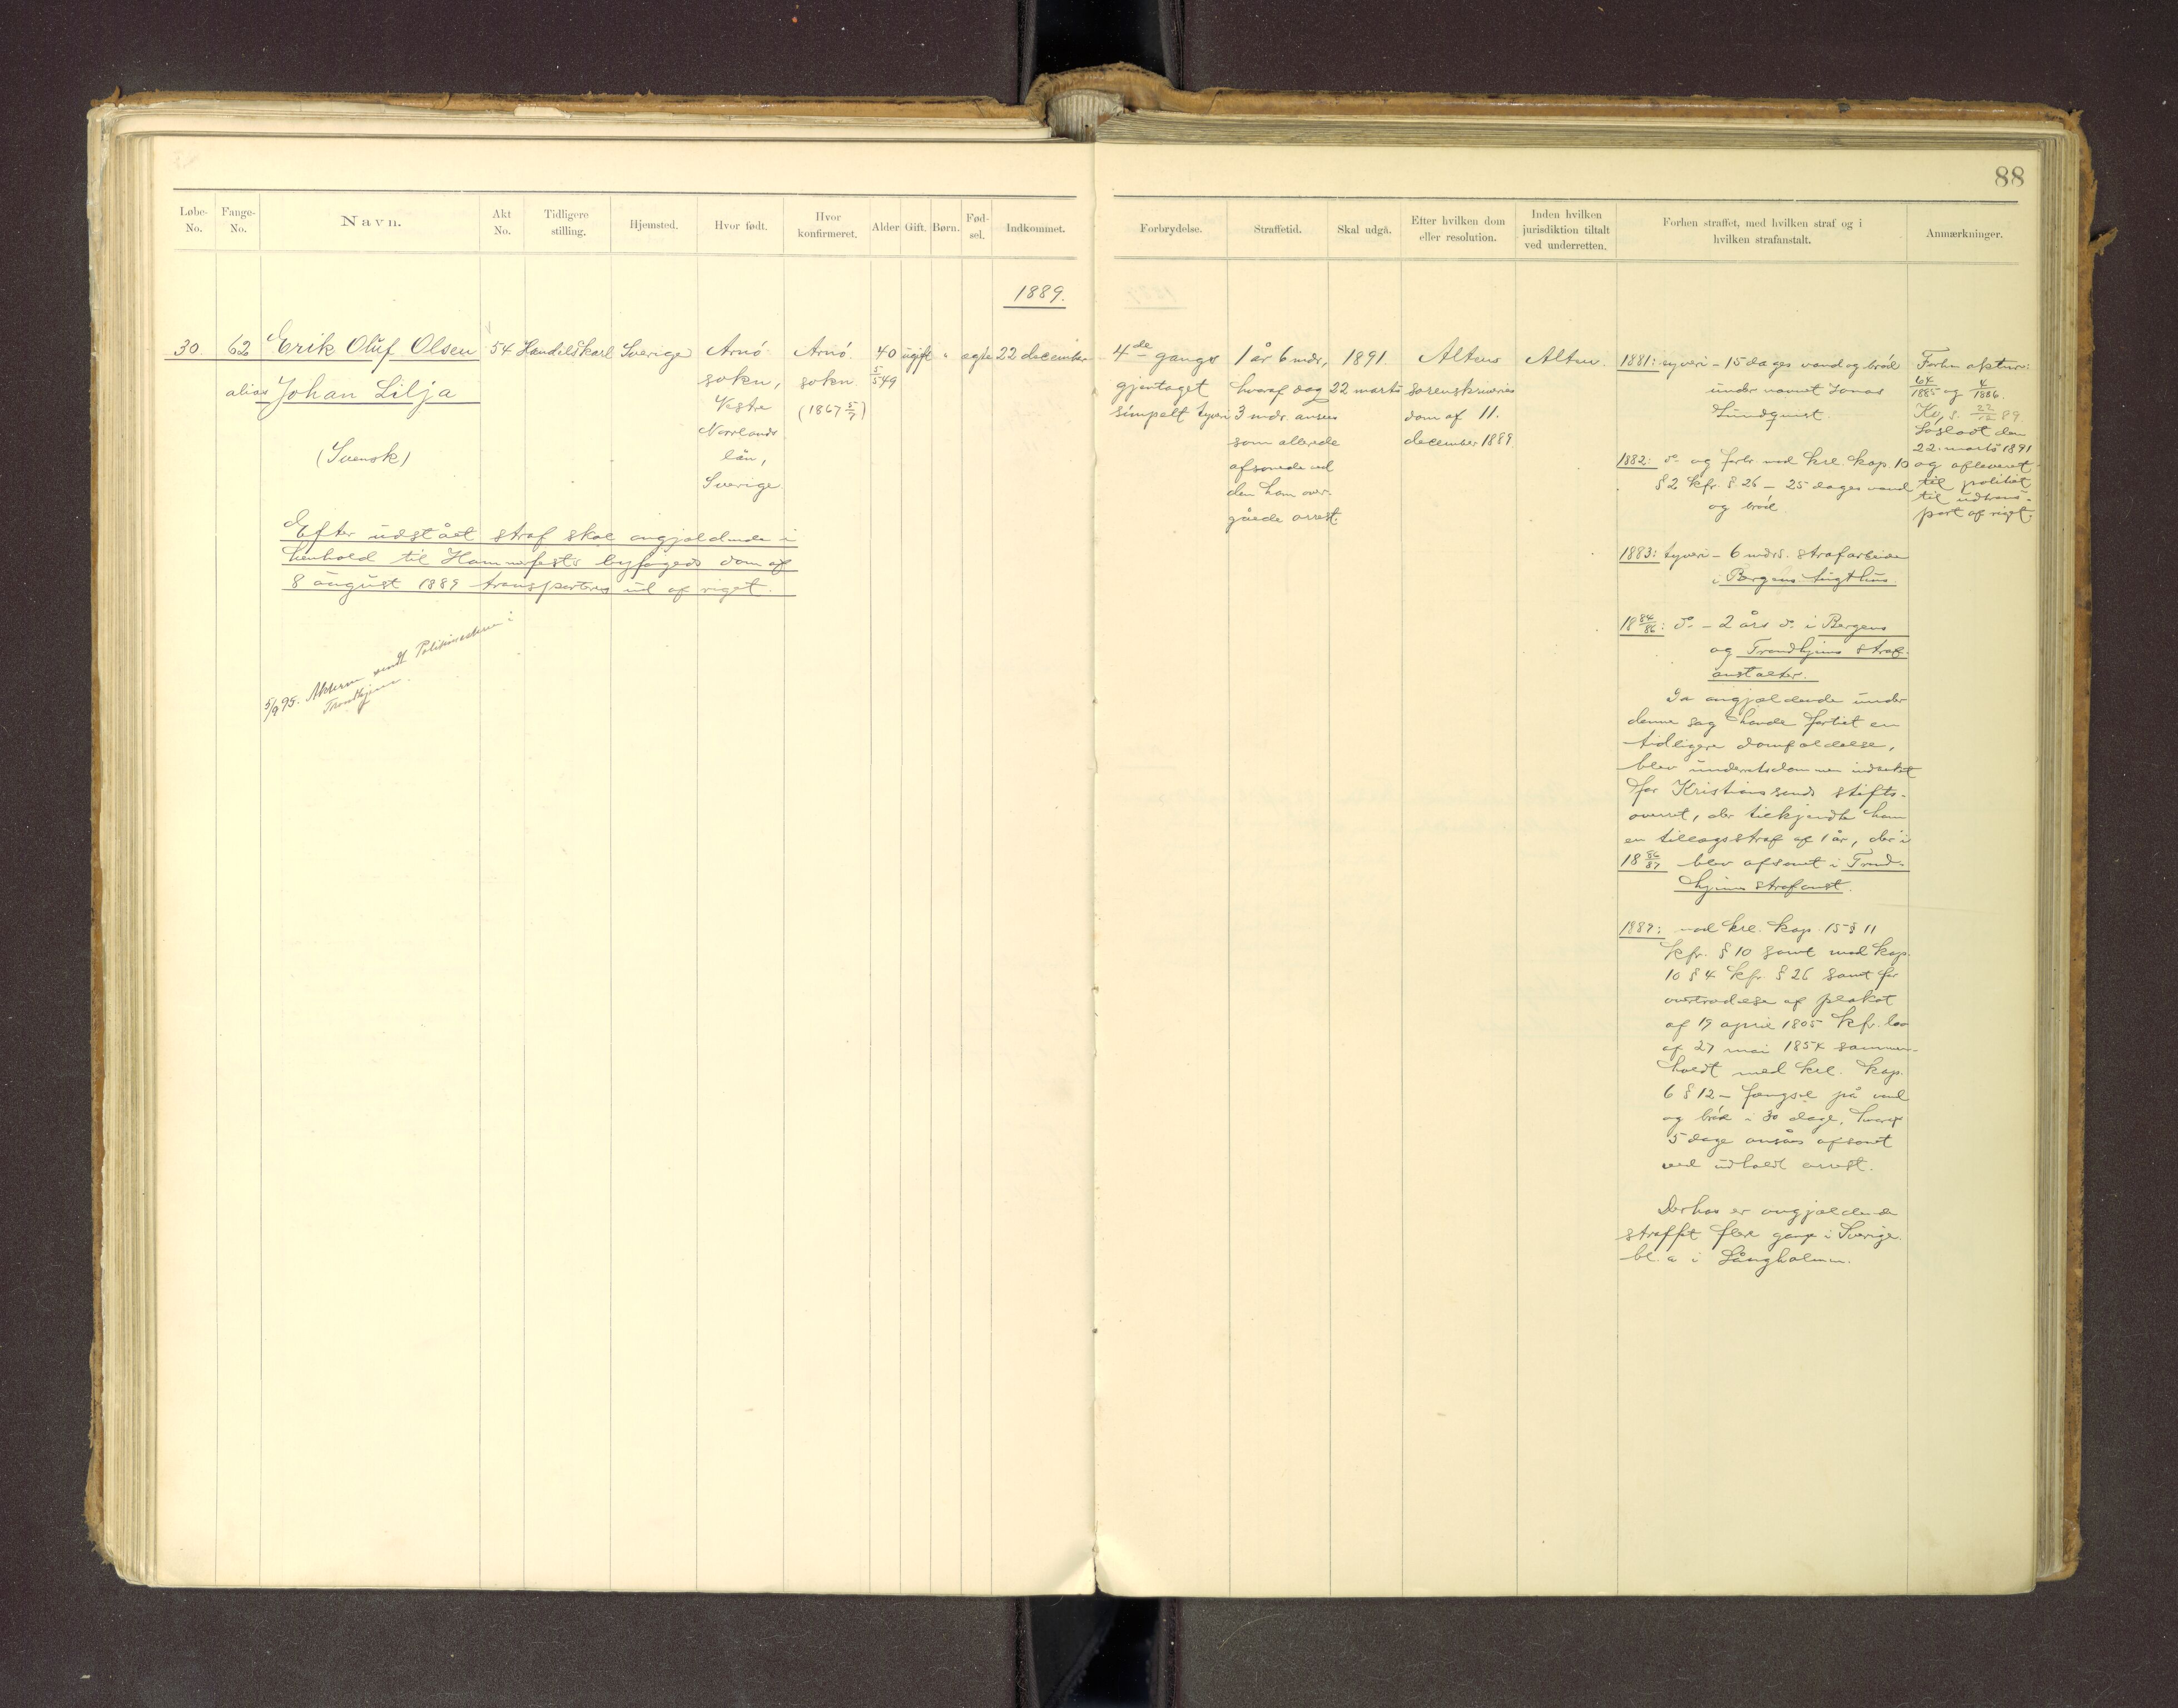 88
Løbe-No.
Fange-No.
Navn.
Akt No.
Tidligere stilling.
Hjemsted.
Hvor født.
Hvor konfirmeret.
Alder
Gift.
Børn.
Fød-sel.
Indkommet.
Forbrydelse.
Straffetid.
Skal udgå.
Efter hvilken dom eller resolution.
Inden hvilken jurisdiktion tiltalt ved underretten.
Forhen straffet, med hvilken straf og i hvilken strafanstalt.
Anmærkninger.
1889.
30.
62
Erik Oluf Olsen
alias Johan Lilja
(Svensk)
54
Handelskarl
Sverige
Arnö
sokn,
Vestre
Norrlands
län,
Sverige.
Arnö
sokn.
(1867 5/7)
40
5/5 49
ugift
"
ægte
22 december
Efter udstået straf skal angjældende i
henhold til Hammerfests byfogeds dom af
8 august 1889 transporteres ud af riget.
5/9 95. Akterne sendt Politimesteren i
Trondhjem.
4de gangs
gjentaget
simpelt tyveri
1 år 6 mdr,
hvoraf dog
3 mdr. ansees
som allerede
afsonede ved
den ham over-
gåede arrest.
1891.
22 marts
Altens
sorenskriveries
dom af 11.
december 1889.
Alten.
1881: tyveri – 15 dages vand og brød
under navnet Jonas
Lundqvist.
1882: do og forbr. mod krl. kap. 10
§ 2 kfr. § 26 – 25 dages vand
og brød
1883: tyveri – 6 mdrs. strafarbeide
i Bergens tugthus.
18 84/86: do – 2 års do i Bergens
og Trondhjems straf-
anstalter.
Da angjældende under
denne sag havde fortiet en
tidligere domfældelse,
blev underretsdommen indanket
for Kristianssands stifts-
overret, der tilkjendte ham
en tillægsstraf af 1 år, der i
18 86/87 blev afsonet i Trond-
hjems strafanst.
1889: mod krl. kap. 15 § 11
kfr. § 10 samt mod kap.
10 § 4 kfr. § 26 samt for
overtrædelse af plakat
af 19 april 1805 kfr. lov
af 27 mai 1854 sammen-
holdt med krl. kap.
6 § 12 – fængsel på vand
og brød i 30 dage, hvoraf
5 dage ansåes afsonet
ved udholdt arrest.
Derhos er angjældende
straffet flere gange i Sverige
bl. a i Långholmen.
Forhen aktnr:
64/1885 og 4/1886.
22/12 89
Løsladt den
22. marts 1891
og afleveret
til politiet
til udtrans-
port af riget.